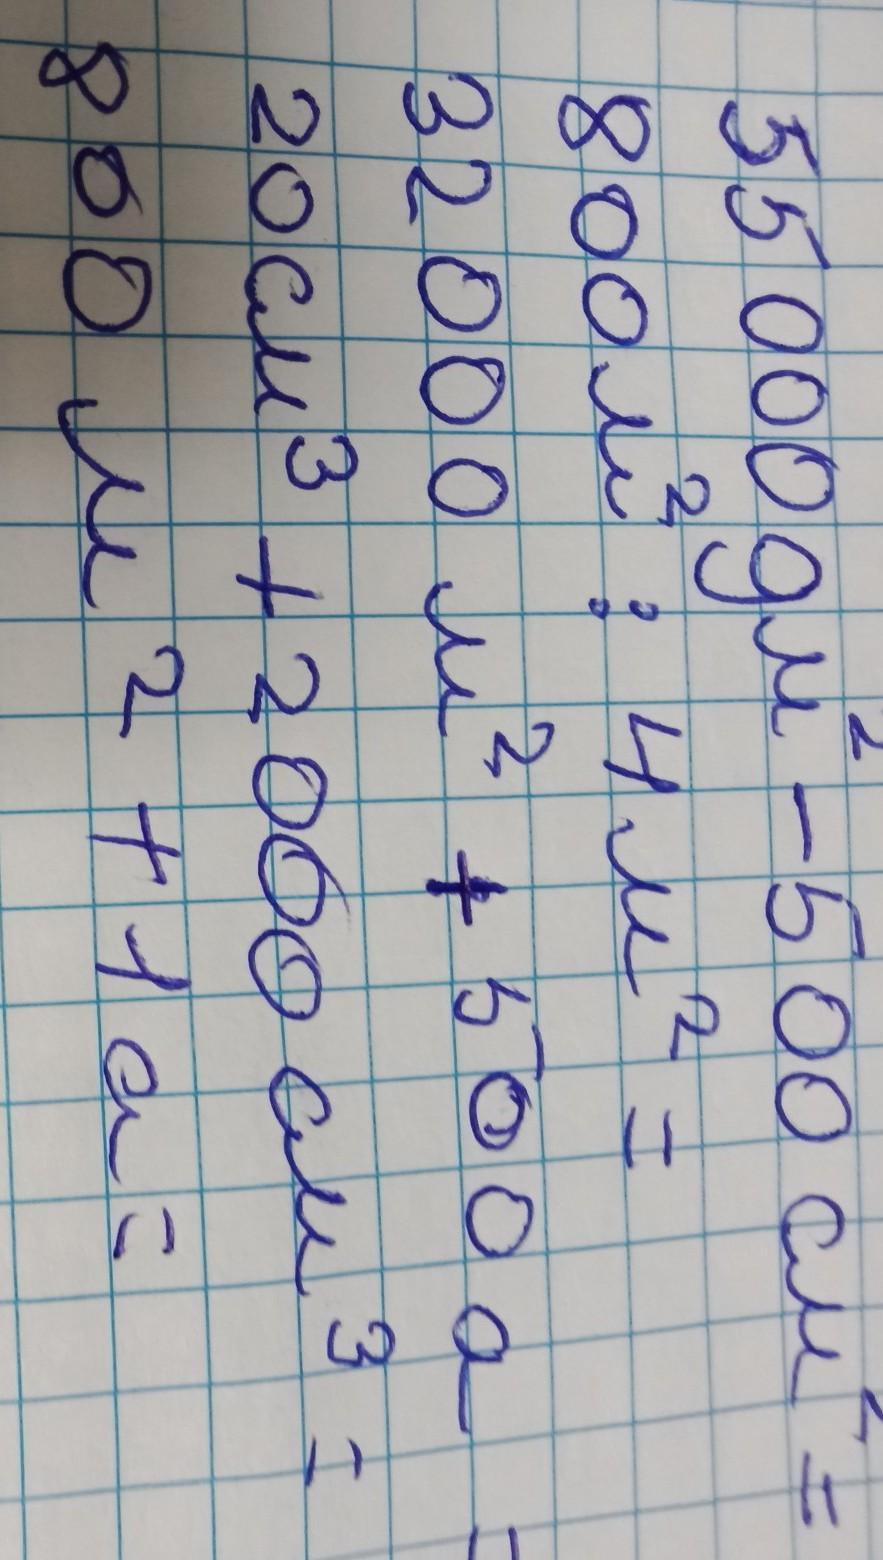 55000дм² - 500 см² =
800м² : 4м² =
32000 м² + 500 а =
20см³ + 2000 см³ =
800 м² + 1а =